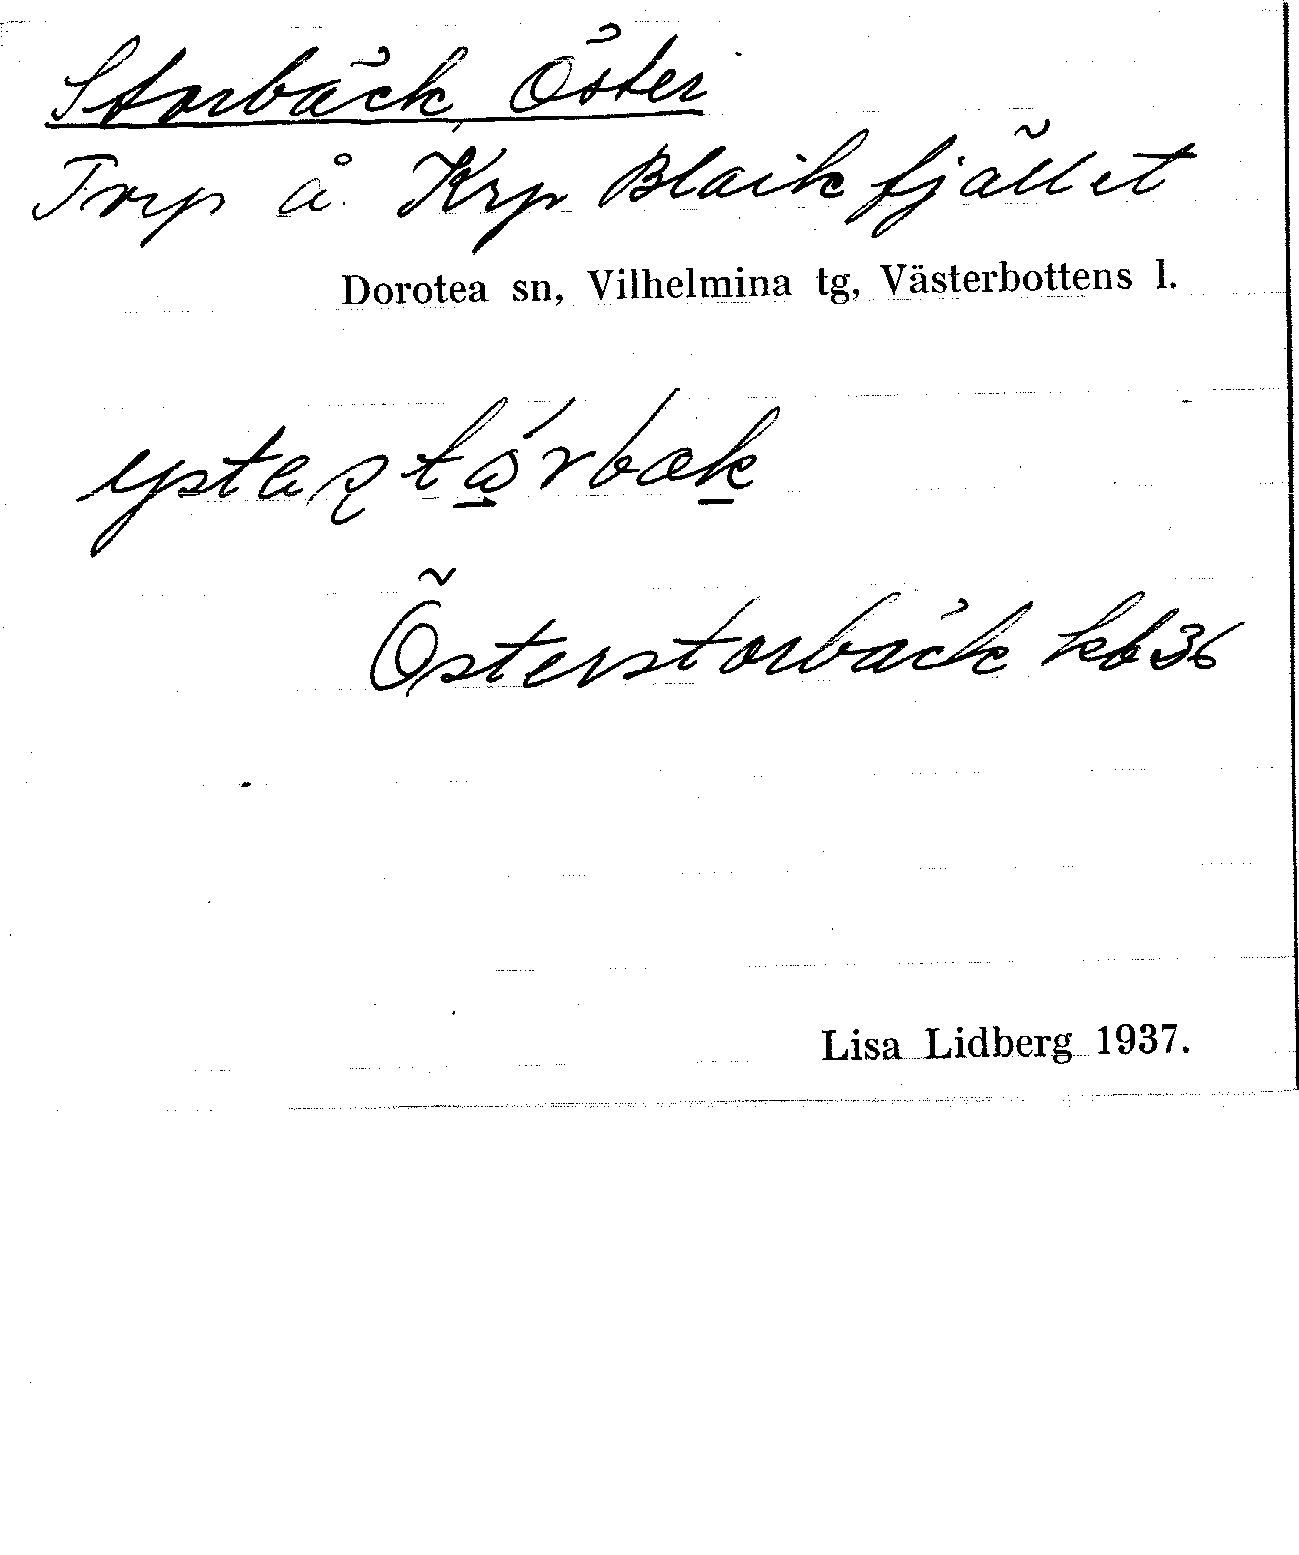 Storbäck, Öster
Trp å. Krp Blaikfjället
Dorotea sn, Vilhelmina tg, Västerbottens l.
Österstorbäck kb 36
Lisa Lidberg 1937.